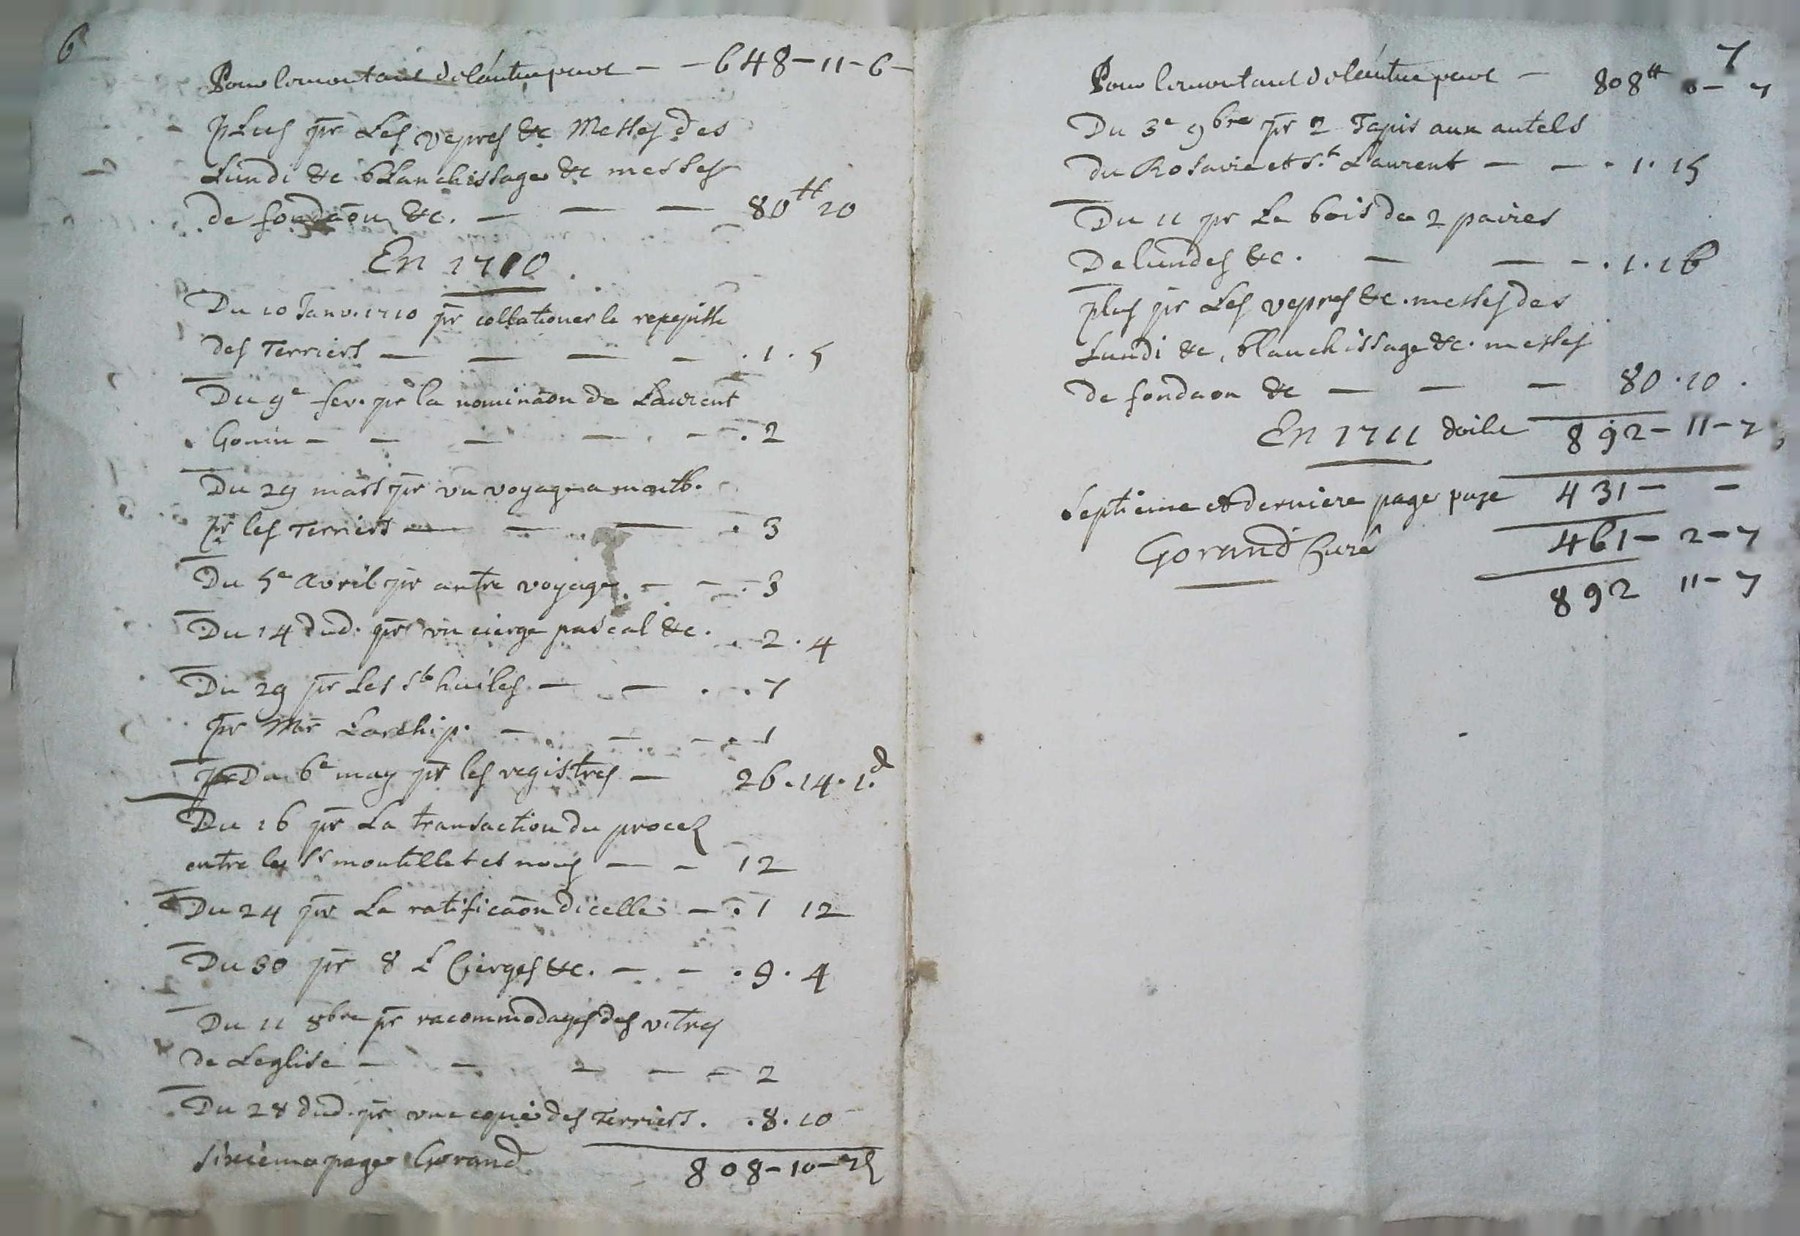 6
Pour le montant de lautre part — — 648 – 11 – 6 –
plus pr Les vepres &c Messes des
Lundi &c bLanchissage &c messes
de fondaon &c. — — — 80tt 20
En 1710
Du 10 Janv. 1710 pr collationer le
des Terriers — — — — . 1 . 5
Du 9e fev. pr la nominaon de Laurent
Gonin — — — — — . 2
Du 29 mars pr un voyage a montb.
pr les Terriers — — — . 3
Du 5e avril pr autre voyage. — — . 3
Du 14 dud. pr un cierge pascal &c. . 2 . 4
Du 29 pr Les Sts huiles — — . . 7
pr Mr Larchip. — — — . 1
Du 6e may pr les registres — 26 . 14 . 1.d
Du 16 pr La transaction du proces
entre les Sr montillet et nous — — 12
Du 24 pr La ratificaon dicelle — . 1 12
Du 30 pr 8 L Cierges &c. — — . 9 . 4
Du 11 8bre pr racommodages des vitres
de Leglise — — — — — 2
Du 28 dud. pr une copie des Terriers . . 8 . 10
sixiema page Gorand 808 – 10 – 7
7
Pour le montant de lautre part — 808tt – 7
Du 3e 9bre pr 2 Tapis aux autels
du Rosaire et St Laurent — — . 1 . 15
Du 11 pr La bois de 2 paires
De lundes &c. — — – . 1 . 16
plus pr Les vepres &c. messes des
Lundi &c, blanchissage &c. messes
de fondaon &c — — — 80 . 10 .
En 1711 doibt 892 – 11 – 7
septieme et derniere page page 431 – –
Gorand Curé 461 – 2 – 7
892 11 – 7